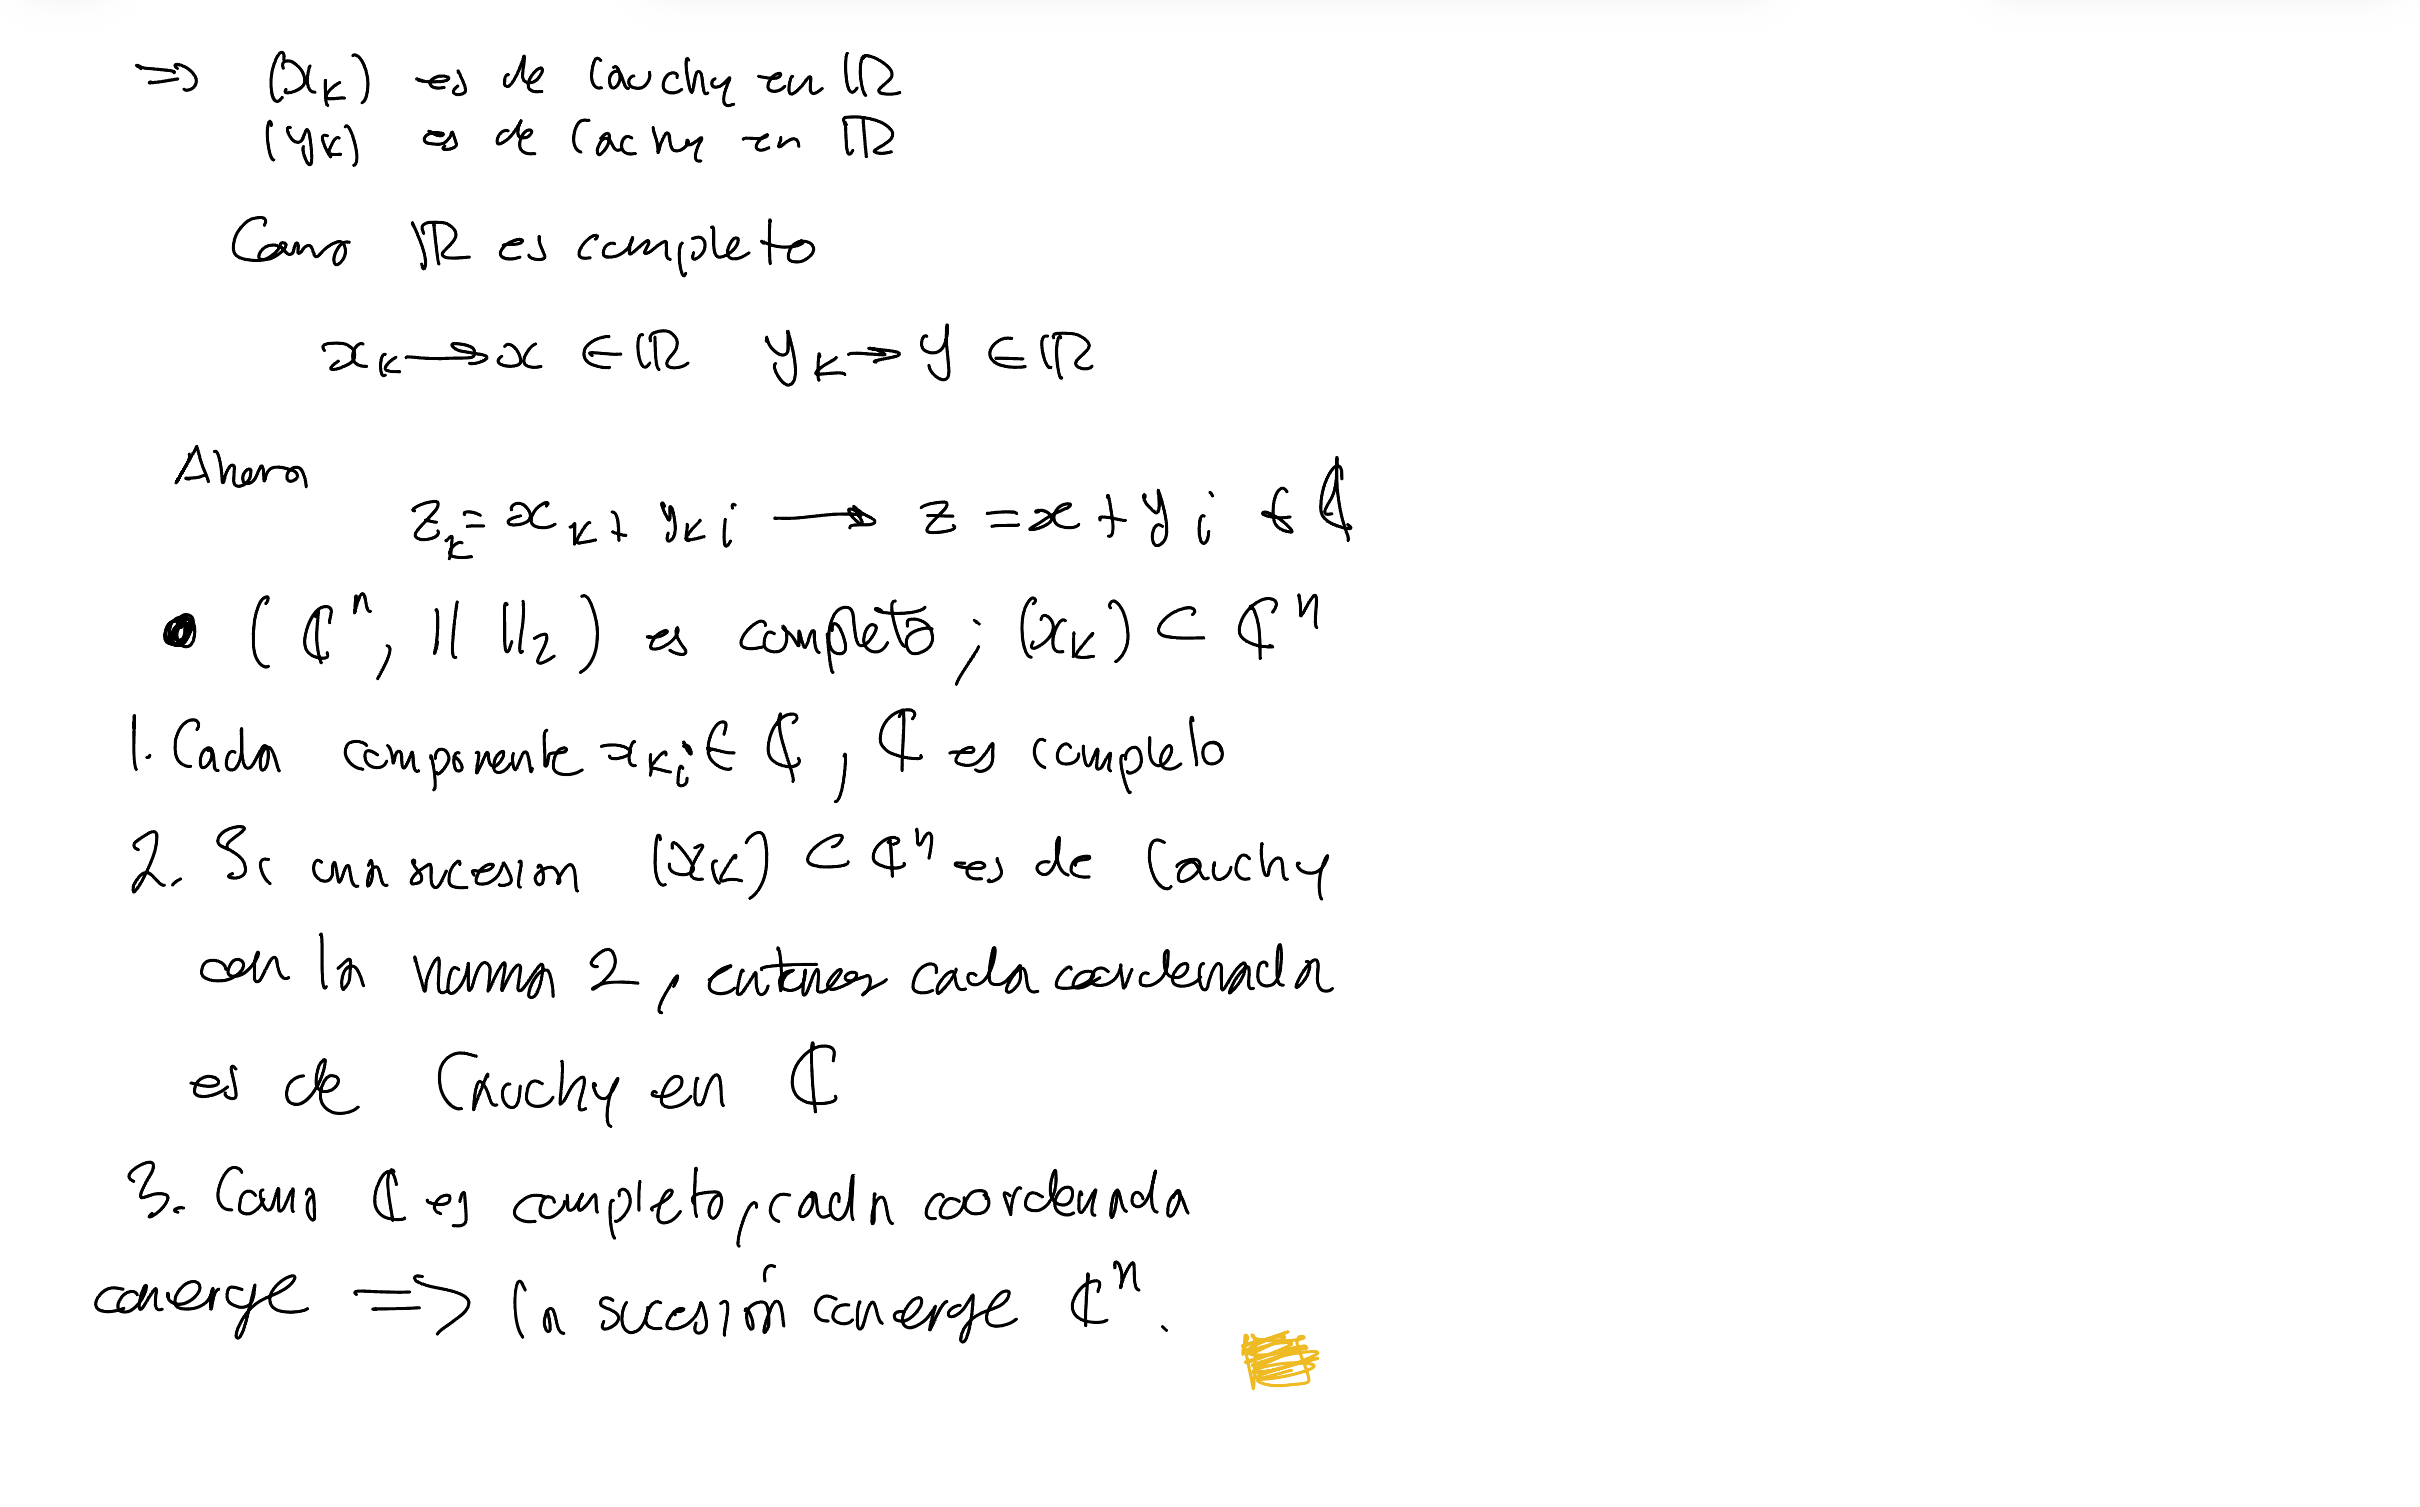 => (x_k) es de Cauchy en ℝ
(y_k) es de Cachy en ℝ
Como ℝ es completo
x_k → x ∈ ℝ y_k → y ∈ ℝ
Ahora
z_k = x_k + y_k i → z = x + y i ∈ ℂ
• (ℂⁿ, || ||₂) es completo ; (x_k) ⊂ ℂⁿ
1. Cada componente x_ki ∈ ℂ, ℂ es completo
2. Si una sucesion (x_k) ⊂ ℂⁿ es de Cauchy
con la norma 2, entonces cada coordenada
es de Cauchy en ℂ
3. Como ℂ es completo, cada coordenada
converge => la sucesión converge ℂⁿ.